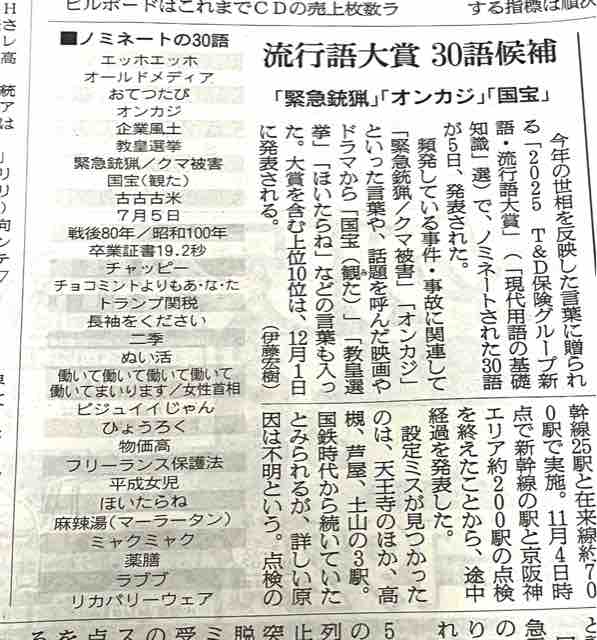 ビルボードはこれまでＣＤの売上枚数ラ
する指標は順次
流行語大賞 30語候補
「緊急銃猟」「オンカジ」「国宝」
今年の世相を反映した言葉に贈られ
る「2025 T&D保険グループ新
語・流行語大賞」（「現代用語の基礎
知識」選）で、ノミネートされた30語
が5日、発表された。
頻発している事件・事故に関連して
「緊急銃猟／クマ被害」「オンカジ」
といった言葉や、話題を呼んだ映画や
ドラマから「国宝（観た）」「教皇選
挙」「ほいたらね」などの言葉も入っ
た。大賞を含む上位10位は、12月1日
に発表される。（伊藤宏樹）
■ノミネートの30語
エッホエッホ
オールドメディア
おてつたび
オンカジ
企業風土
教皇選挙
緊急銃猟／クマ被害
国宝(観た)
古古古米
7月5日
戦後80年／昭和100年
卒業証書19.2秒
チャッピー
チョコミントよりもあ・な・た
トランプ関税
長袖をください
二季
ぬい活
働いて働いて働いて働いて
働いてまいります／女性首相
ビジュイイじゃん
ひょうろく
物価高
フリーランス保護法
平成女児
ほいたらね
麻辣湯(マーラータン)
ミャクミャク
薬膳
ラブブ
リカバリーウェア
幹線25駅と在来線約70
0駅で実施。11月4日時
点で新幹線の駅と京阪神
エリア約200駅の点検
を終えたことから、途中
経過を発表した。
設定ミスが見つかった
のは、天王寺のほか、高
槻、芦屋、土山の3駅。
国鉄時代から続いていた
とみられるが、詳しい原
因は不明という。点検の